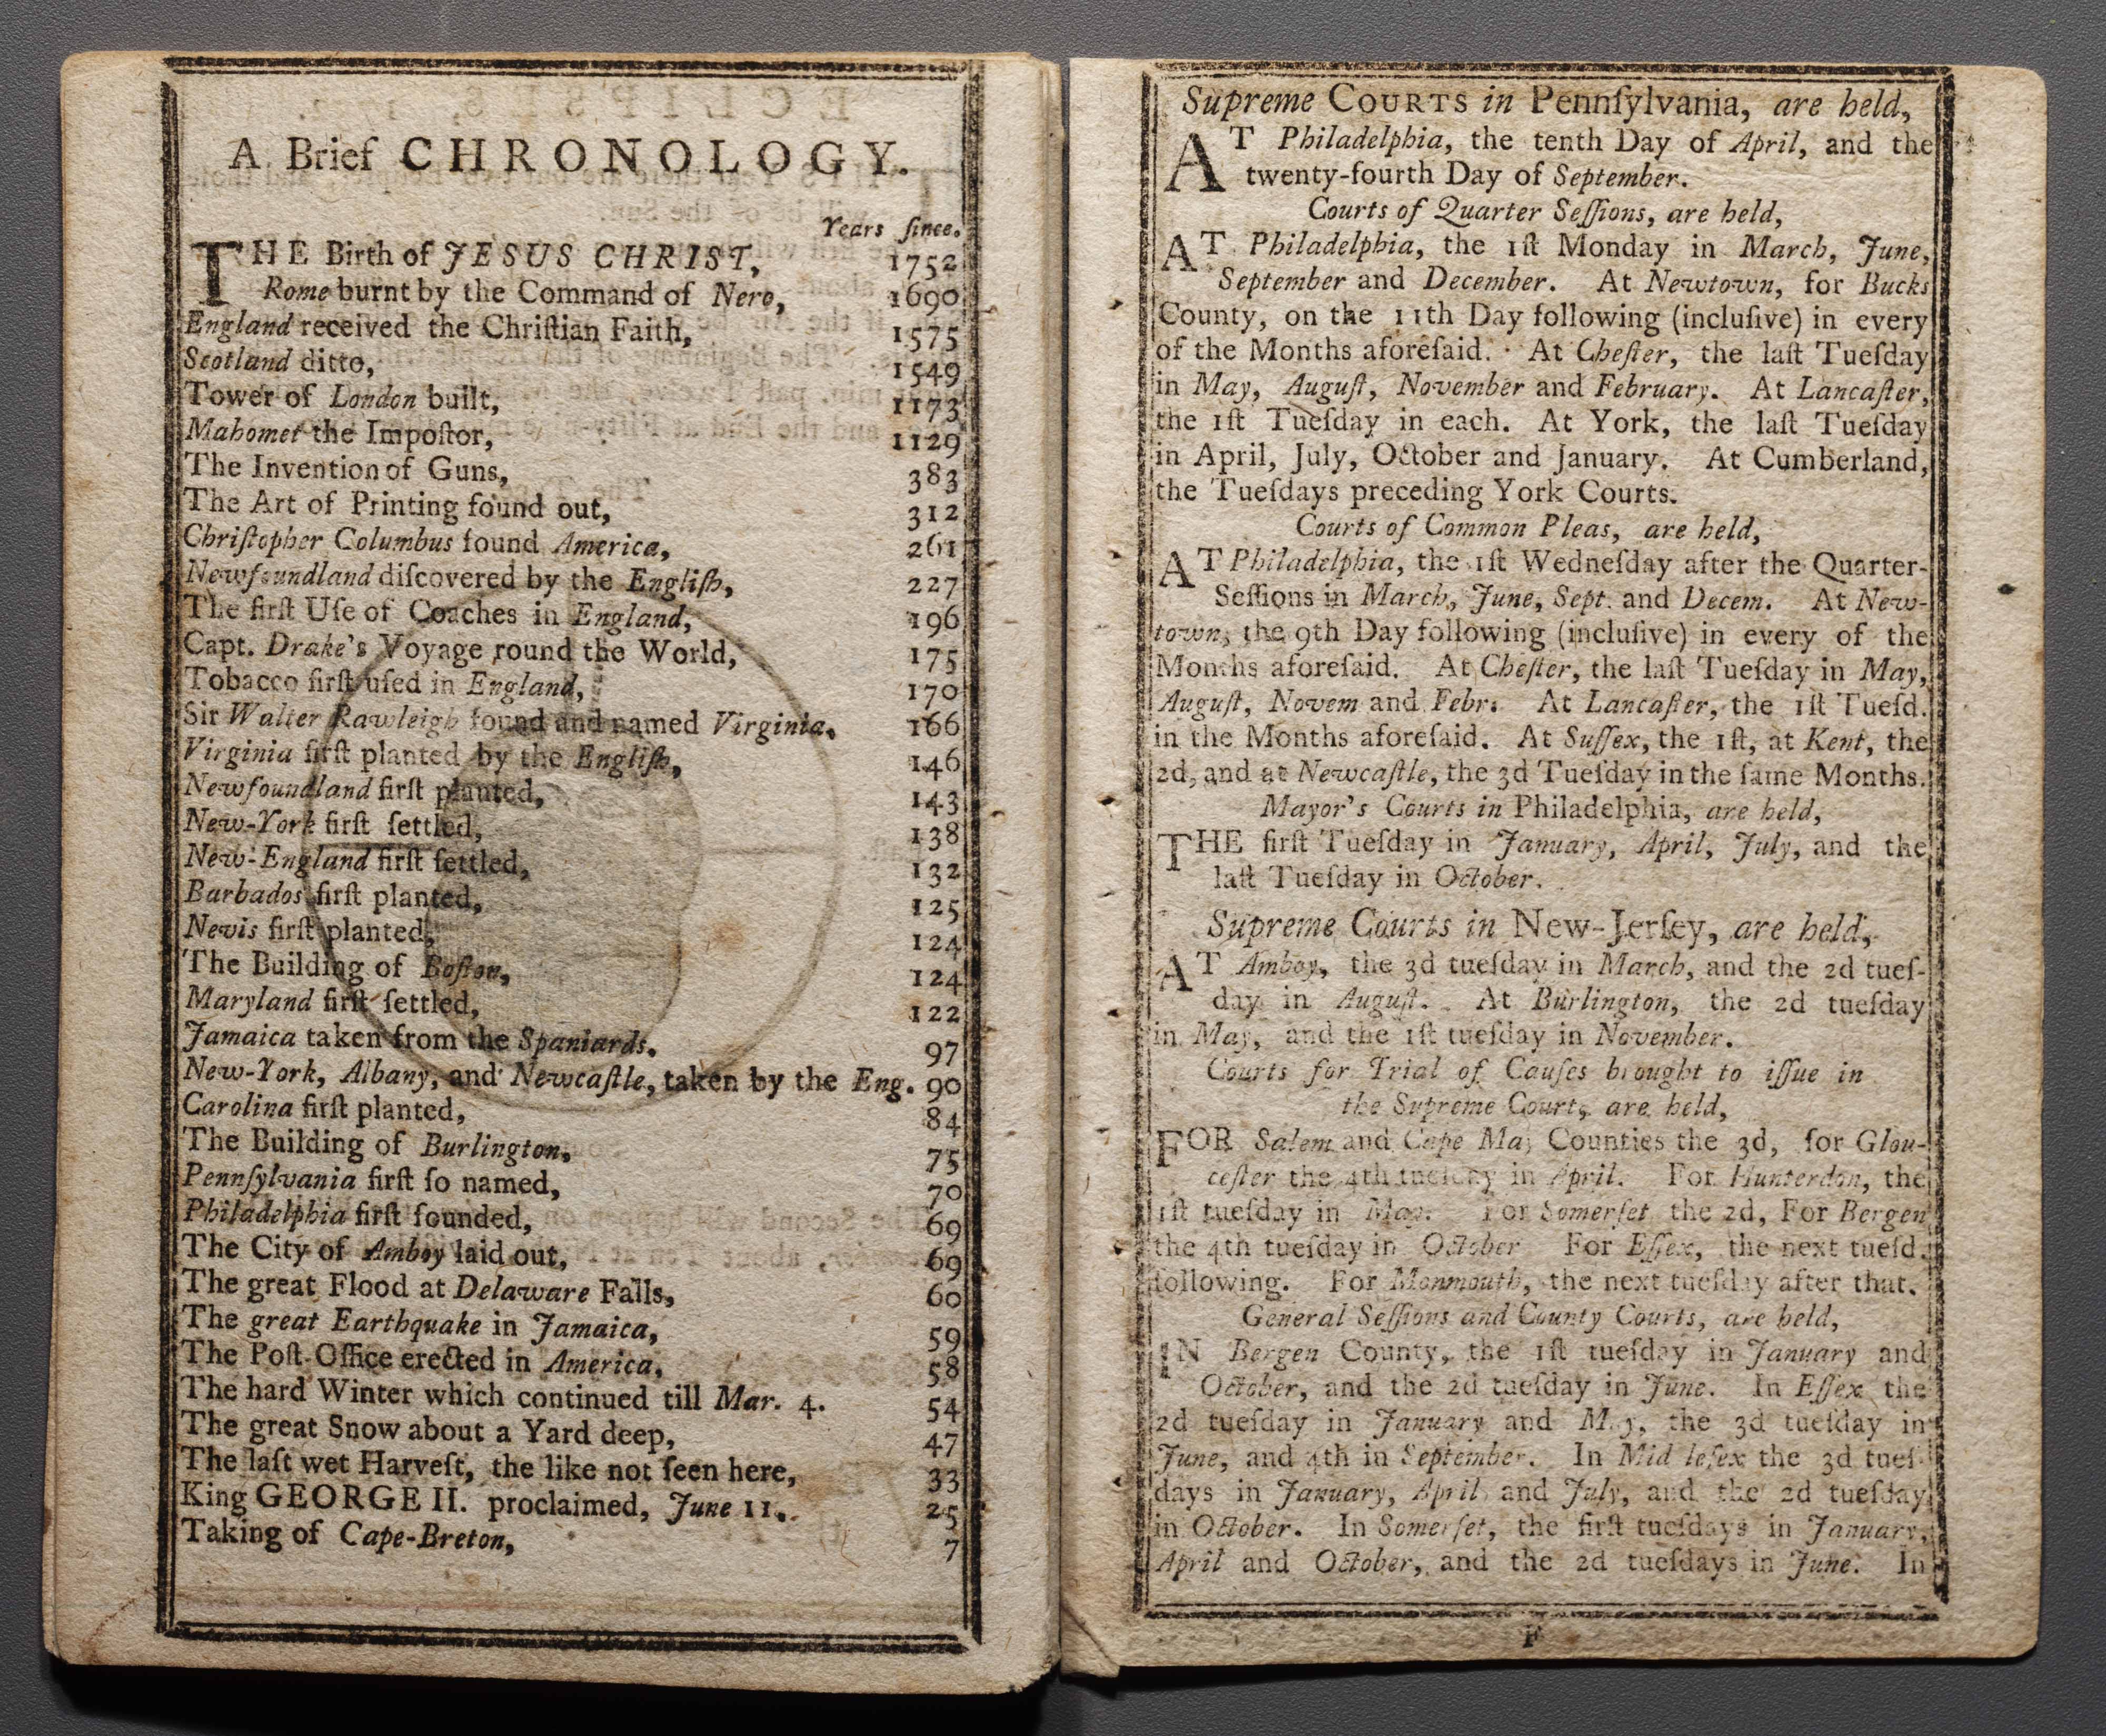 A Brief CHRONOLOGY.
Years ſince.
THE Birth of JESUS CHRIST, 1752
Rome burnt by the Command of Nero, 1690
England received the Chriſtian Faith, 1575
Scotland ditto, 1549
Tower of London built, 1173
Mahomet the Impoſtor, 1129
The Invention of Guns, 383
The Art of Printing found out, 312
Chriſtopher Columbus found America, 261
Newfoundland diſcovered by the Engliſh, 227
The firſt Uſe of Coaches in England, 196
Capt. Drake's Voyage round the World, 175
Tobacco firſt uſed in England, 170
Sir Walter Rawleigh found and named Virginia. 166
Virginia firſt planted by the Engliſh, 146
Newfoundland firſt planted, 143
New-York firſt ſettled, 138
New-England firſt ſettled, 132
Barbados firſt planted, 125
Nevis firſt planted, 124
The Building of Boſton, 124
Maryland firſt ſettled, 122
Jamaica taken from the Spaniards. 97
New-York, Albany, and Newcaſtle, taken by the Eng. 90
Carolina firſt planted, 84
The Building of Burlington, 75
Pennſylvania firſt ſo named, 70
Philadelphia firſt founded, 69
The City of Amboy laid out, 69
The great Flood at Delaware Falls, 60
The great Earthquake in Jamaica, 59
The Poſt-Office erected in America, 58
The hard Winter which continued till Mar. 4. 54
The great Snow about a Yard deep, 47
The laſt wet Harveſt, the like not ſeen here, 33
King GEORGE II. proclaimed, June 11. 25
Taking of Cape-Breton, 7
Supreme COURTS in Pennſylvania, are held,
AT Philadelphia, the tenth Day of April, and the
twenty-fourth Day of September.
Courts of Quarter Seſſions, are held,
AT Philadelphia, the 1ſt Monday in March, June,
September and December. At Newtown, for Bucks
County, on the 11th Day following (incluſive) in every
of the Months aforeſaid. At Cheſter, the laſt Tueſday
in May, Auguſt, November and February. At Lancaſter,
the 1ſt Tueſday in each. At York, the laſt Tueſday
in April, July, October and January. At Cumberland,
the Tueſdays preceding York Courts.
Courts of Common Pleas, are held,
AT Philadelphia, the 1ſt Wedneſday after the Quarter-
Seſſions in March, June, Sept. and Decem. At New-
town, the 9th Day following (incluſive) in every of the
Months aforeſaid. At Cheſter, the laſt Tueſday in May,
Auguſt, Novem and Febr. At Lancaſter, the 1ſt Tueſd.
in the Months aforeſaid. At Suſſex, the 1ſt, at Kent, the
2d, and at Newcaſtle, the 3d Tueſday in the ſame Months.
Mayor's Courts in Philadelphia, are held,
THE firſt Tueſday in January, April, July, and the
laſt Tueſday in October.
Supreme Courts in New-Jerſey, are held,
AT Amboy, the 3d tueſday in March, and the 2d tueſ-
day in Auguſt. At Burlington, the 2d tueſday
in May, and the 1ſt tueſday in November.
Courts for Trial of Cauſes brought to iſſue in
the Supreme Court, are held,
FOR Salem and Cape May Counties the 3d, for Glou-
ceſter the 4th tueſday in April. For Hunterdon, the
1ſt tueſday in May. For Somerſet the 2d, For Bergen
the 4th tueſday in October For Eſſex, the next tueſd.
following. For Monmouth, the next tueſday after that.
General Seſſions and County Courts, are held,
IN Bergen County, the 1ſt tueſday in January and
October, and the 2d tueſday in June. In Eſſex the
2d tueſday in January and May, the 3d tueſday in
June, and 4th in September. In Midleſex the 3d tueſ-
days in January, April and July, and the 2d tueſday
in October. In Somerſet, the firſt tueſdays in January,
April and October, and the 2d tueſdays in June. In
F